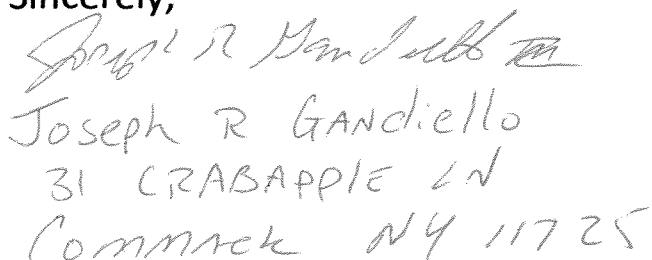 Sincerely,
Joseph R Gandiello III
Joseph R GANdiello
31 CRABAPPlE LN
Commack NY 11725